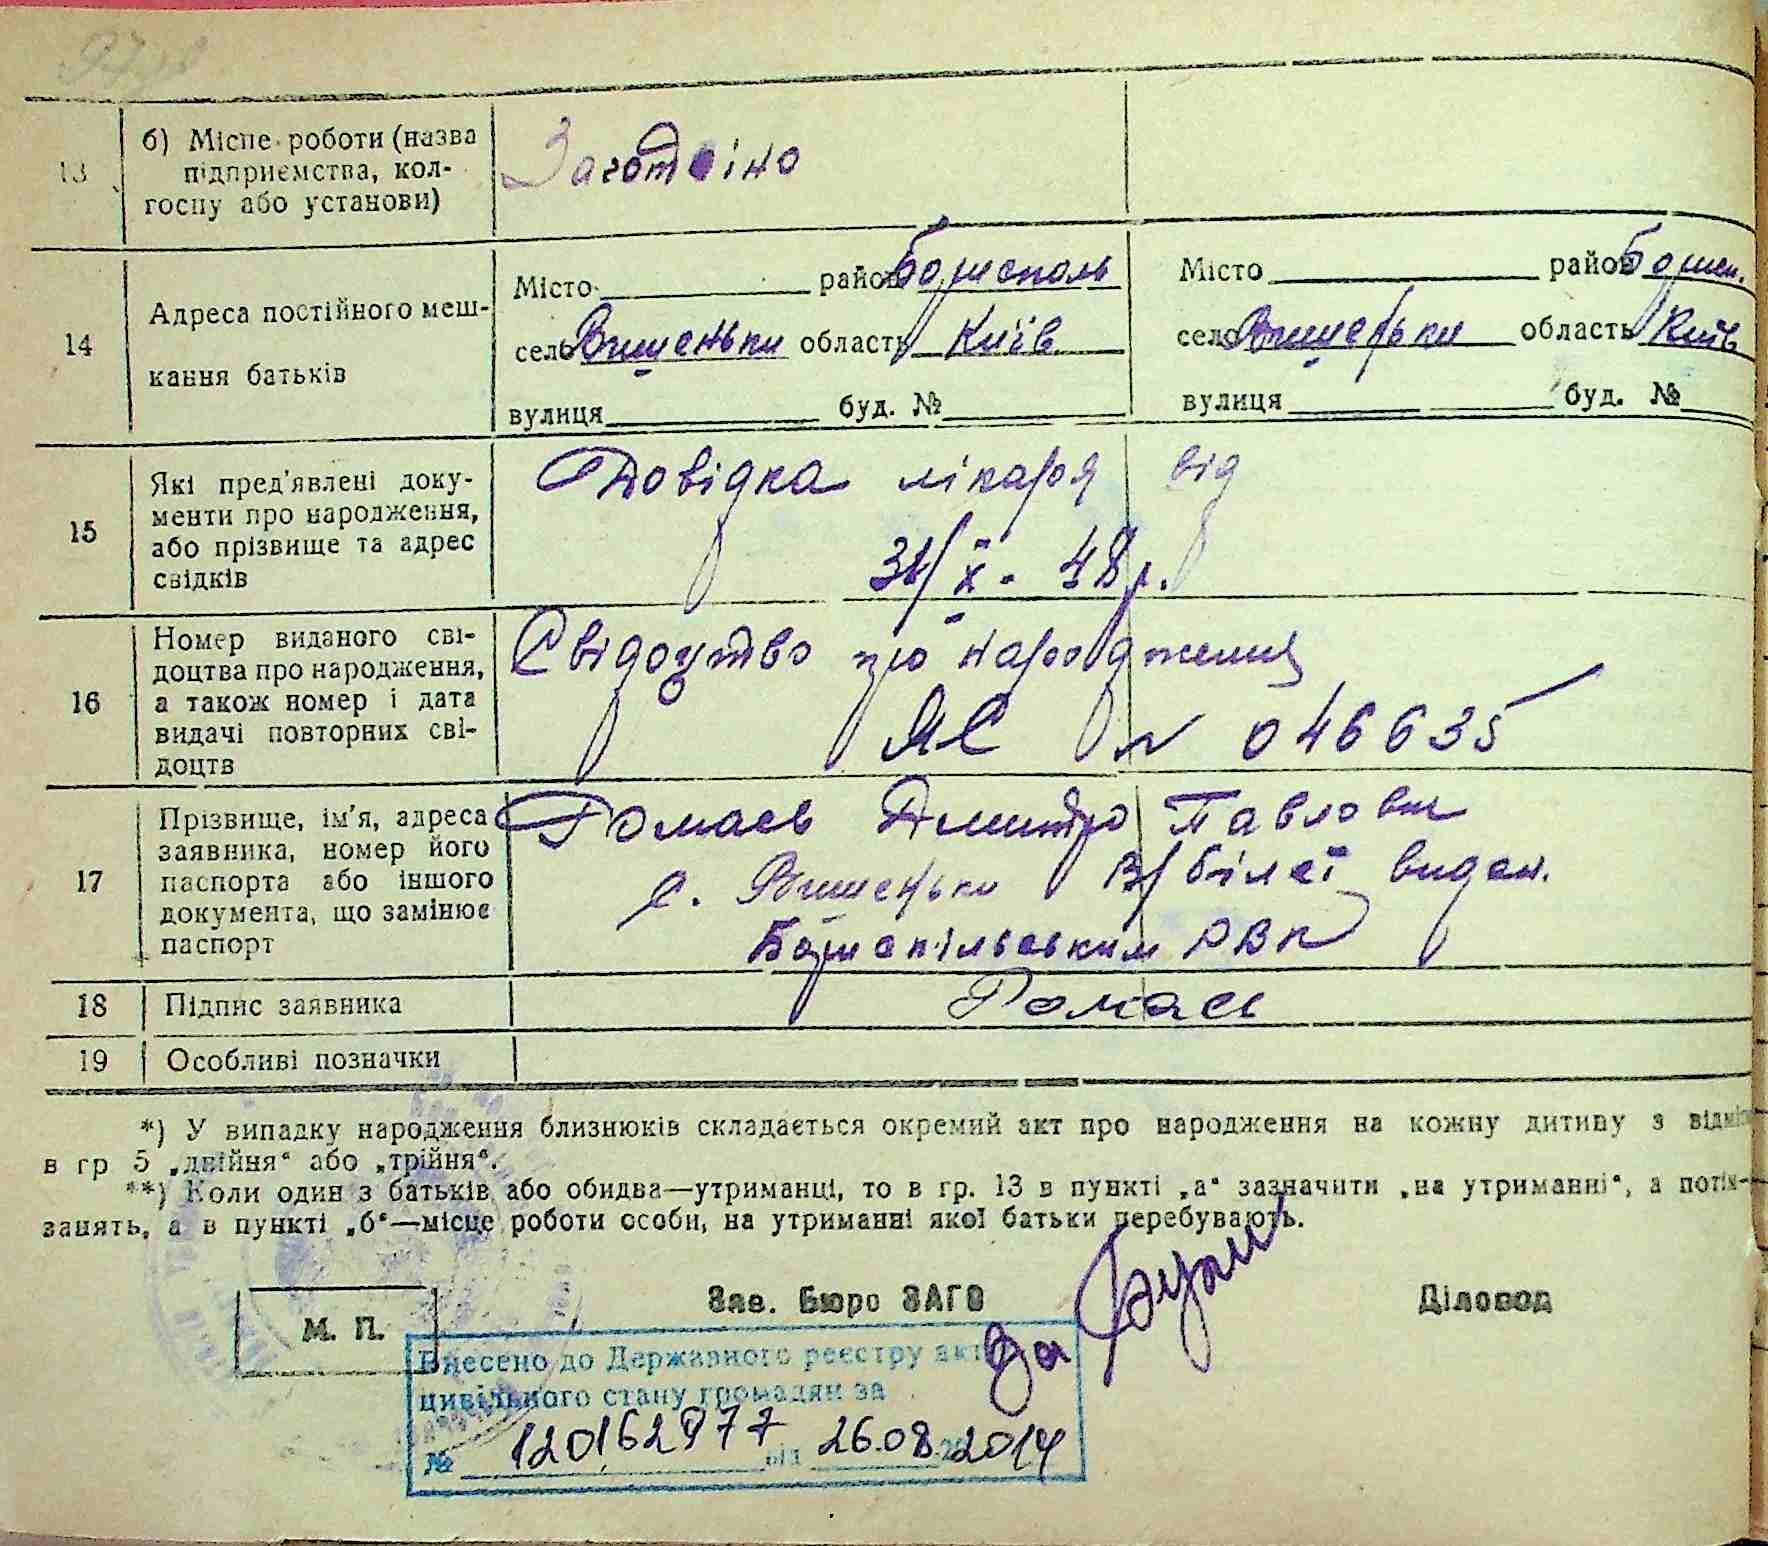 13 б) Місце роботи (назва
підприємства, кол-
госпу або установи)
Заготсіно
14 Адреса постійного меш-
кання батьків
Місто район Бориспол
село Вишеньки область Київ
вулиця буд. №
Місто район Борисп.
село Вишеньки область Київ
вулиця буд. №
15 Які пред'явлені доку-
менти про народження,
або прізвище та адрес
свідків
Довідка лікаря від
31/X - 48 р.
16 Номер виданого сві-
доцтва про народження,
а також номер і дата
видачі повторних сві-
доцтв
Свідоцтво про народження
ЯС № 046635
17 Прізвище, ім'я, адреса
заявника, номер його
паспорта або іншого
документа, що замінює
паспорт
Ромась Дмитро Павлович
с. Вишеньки В/білет видан.
Бориспільським РВК
18 Підпис заявника Ромась
19 Особливі позначки
*) У випадку народження близнюків складається окремий акт про народження на кожну дитину з
в гр 5 „двійня“ або „трійня“.
**) Коли один з батьків або обидва—утриманці, то в гр. 13 в пункті „а“ зазначити „на утриманні“, а
занять, а в пункті „б“—місце роботи особи, на утриманні якої батьки перебувають.
М. П.
Зав. Бюро ЗАГС
за
Діловод
Внесено до Державного реєстру акт
цивільного стану громадян за
№ 120162977 від 26.08.2014